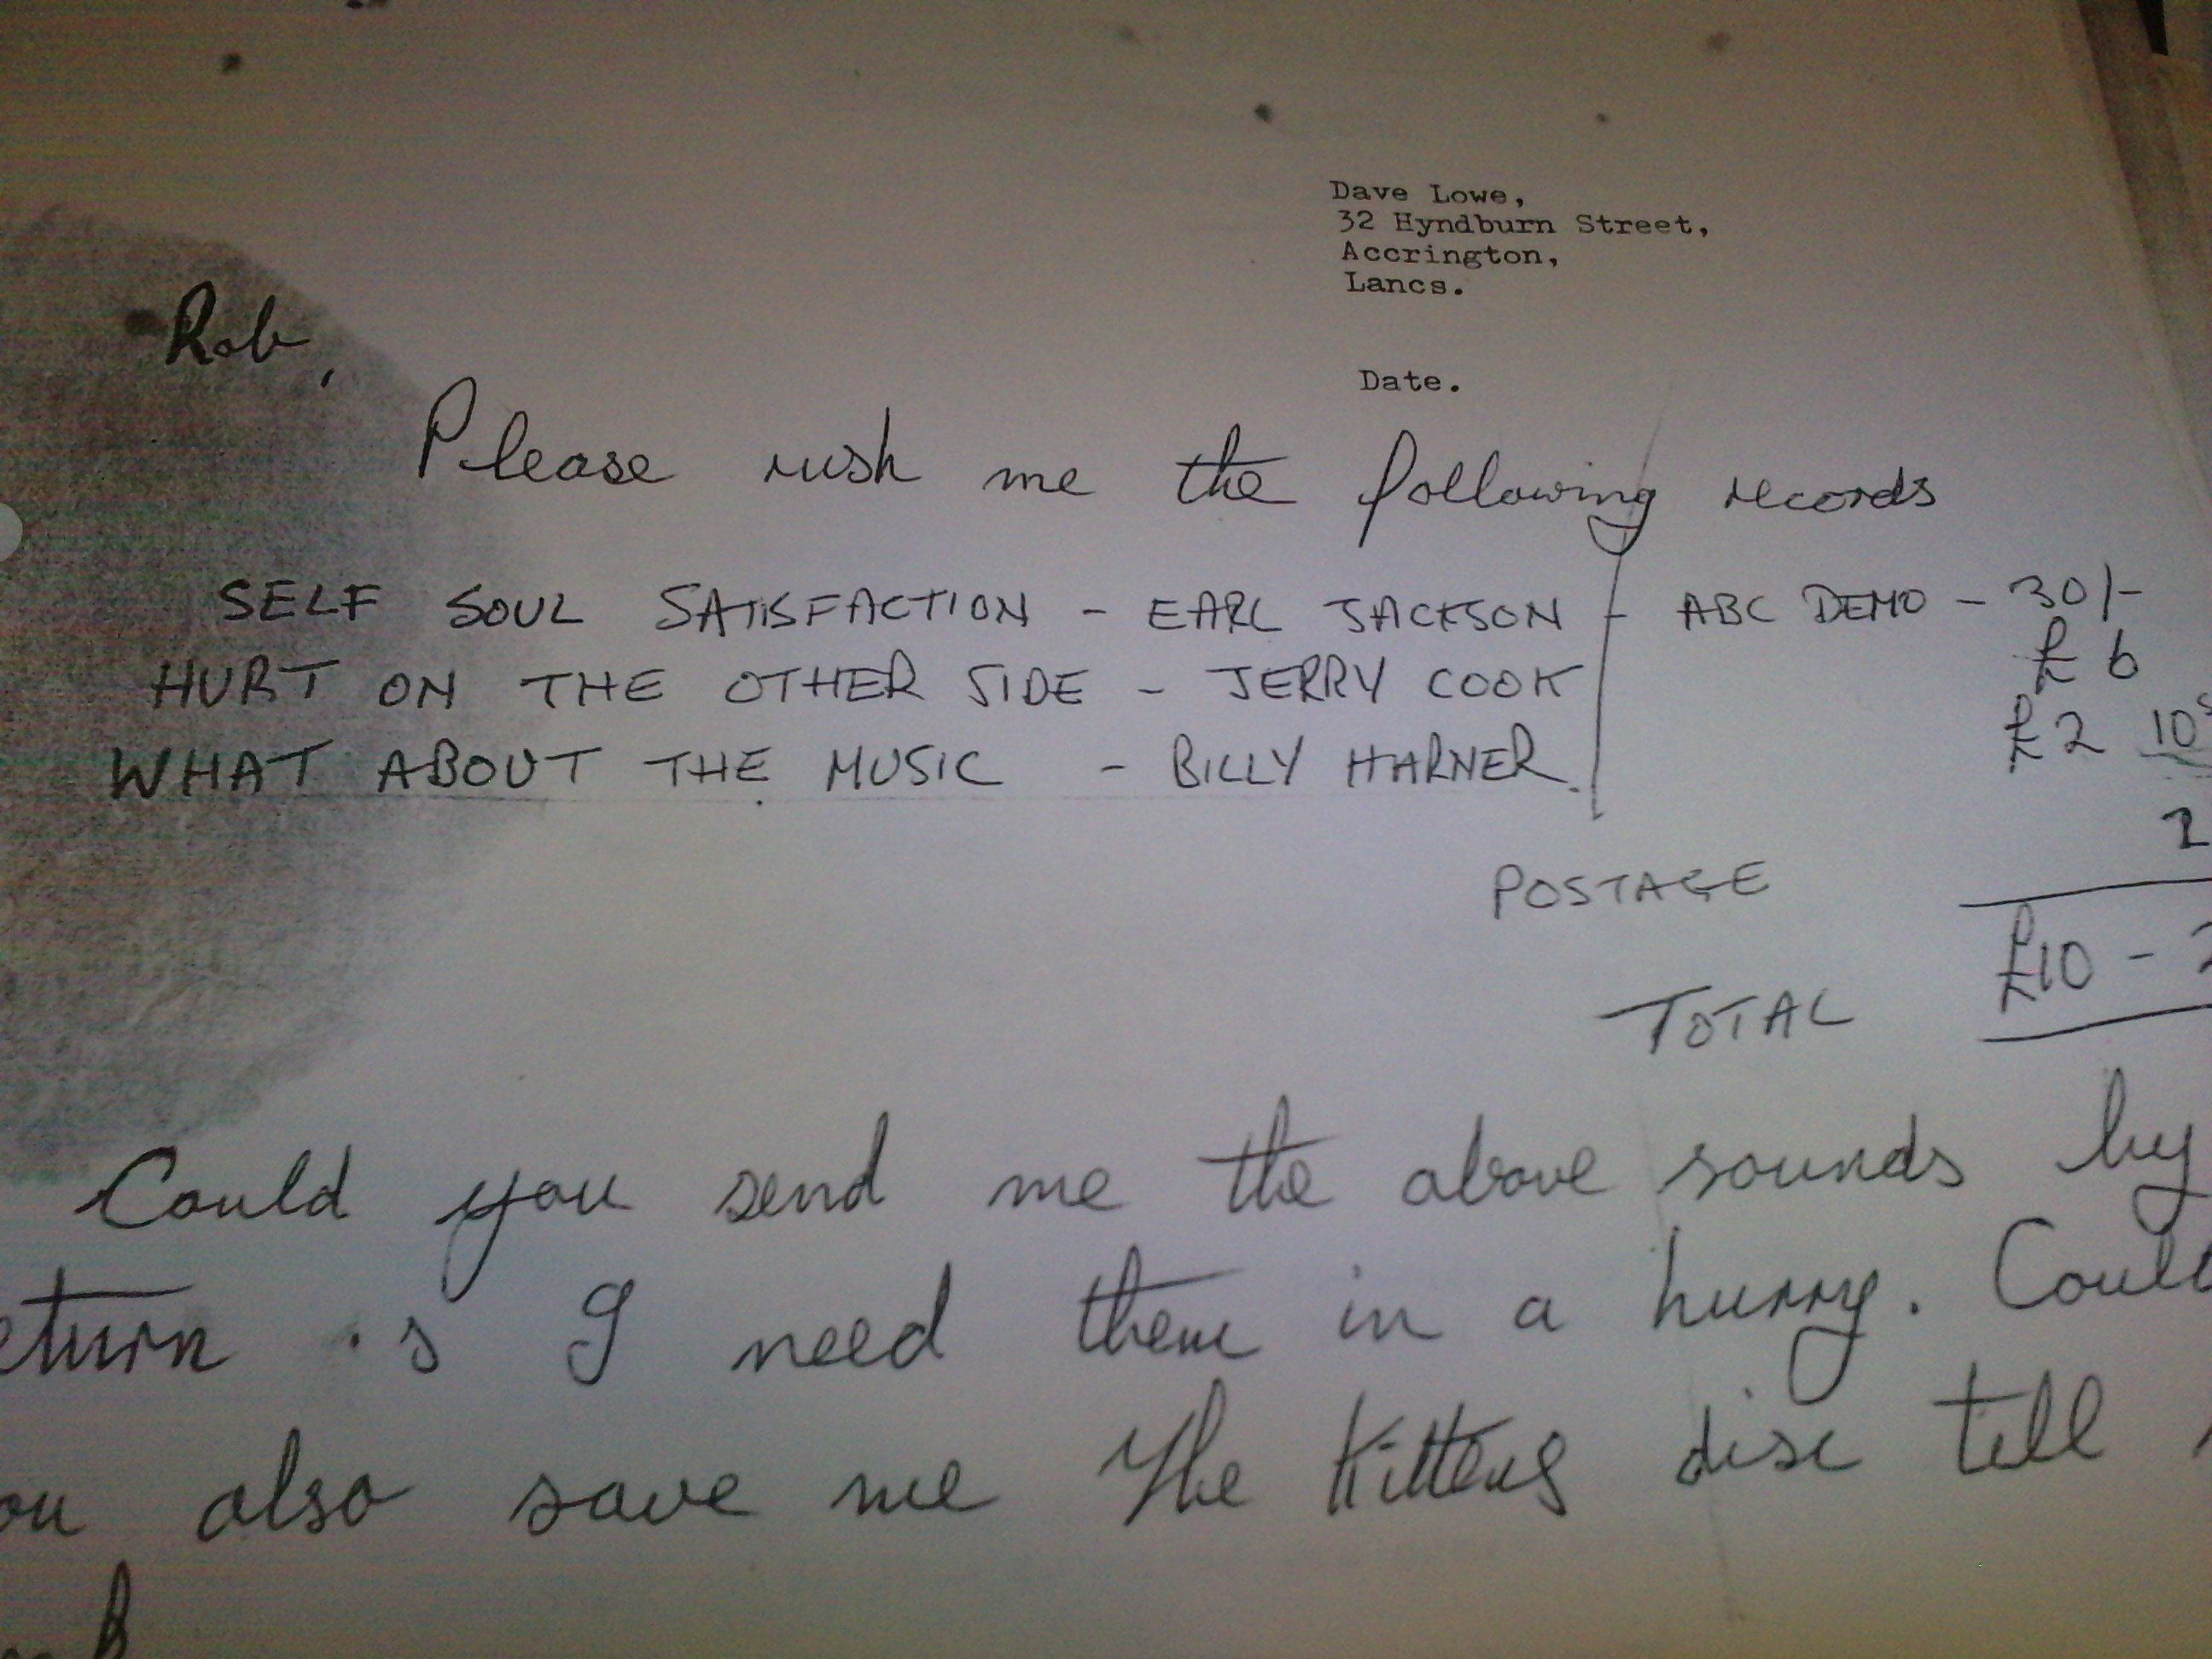 Dave Lowe,
32 Hyndburn Street,
Accrington,
Lancs.
Rob,
Date.
Please rush me the following records
SELF SOUL SATISFACTION - EARL JACKSON - ABC DEMO - 30/-
HURT ON THE OTHER SIDE - JERRY COOK £6
WHAT ABOUT THE MUSIC - BILLY HARNER. £2 10s
POSTAGE 2
TOTAL £10 - 2
Could you send me the above sounds by
eturn as I need them in a hurry. Could
ou also save me the Kittens disc till